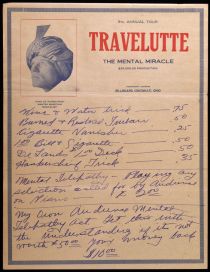 5th ANNUAL TOUR
TRAVELUTTE
THE MENTAL MIRACLE
BILLBOARD, CINCINNATI, OHIO
Wine & Water trick .75
Burned & Restored .50
Cigarette Vanisher .25
$1 Bill & Cigarette .50
De Land $ Deck .50
Handkerchief Trick .35
Mental Telepathy - Playing any
selection asked for by Audience
on Piano $2.00
My Own Audience Mental
Telepathy Act Get this with
the understanding if its not
worth $50.00 your money back
$10.00